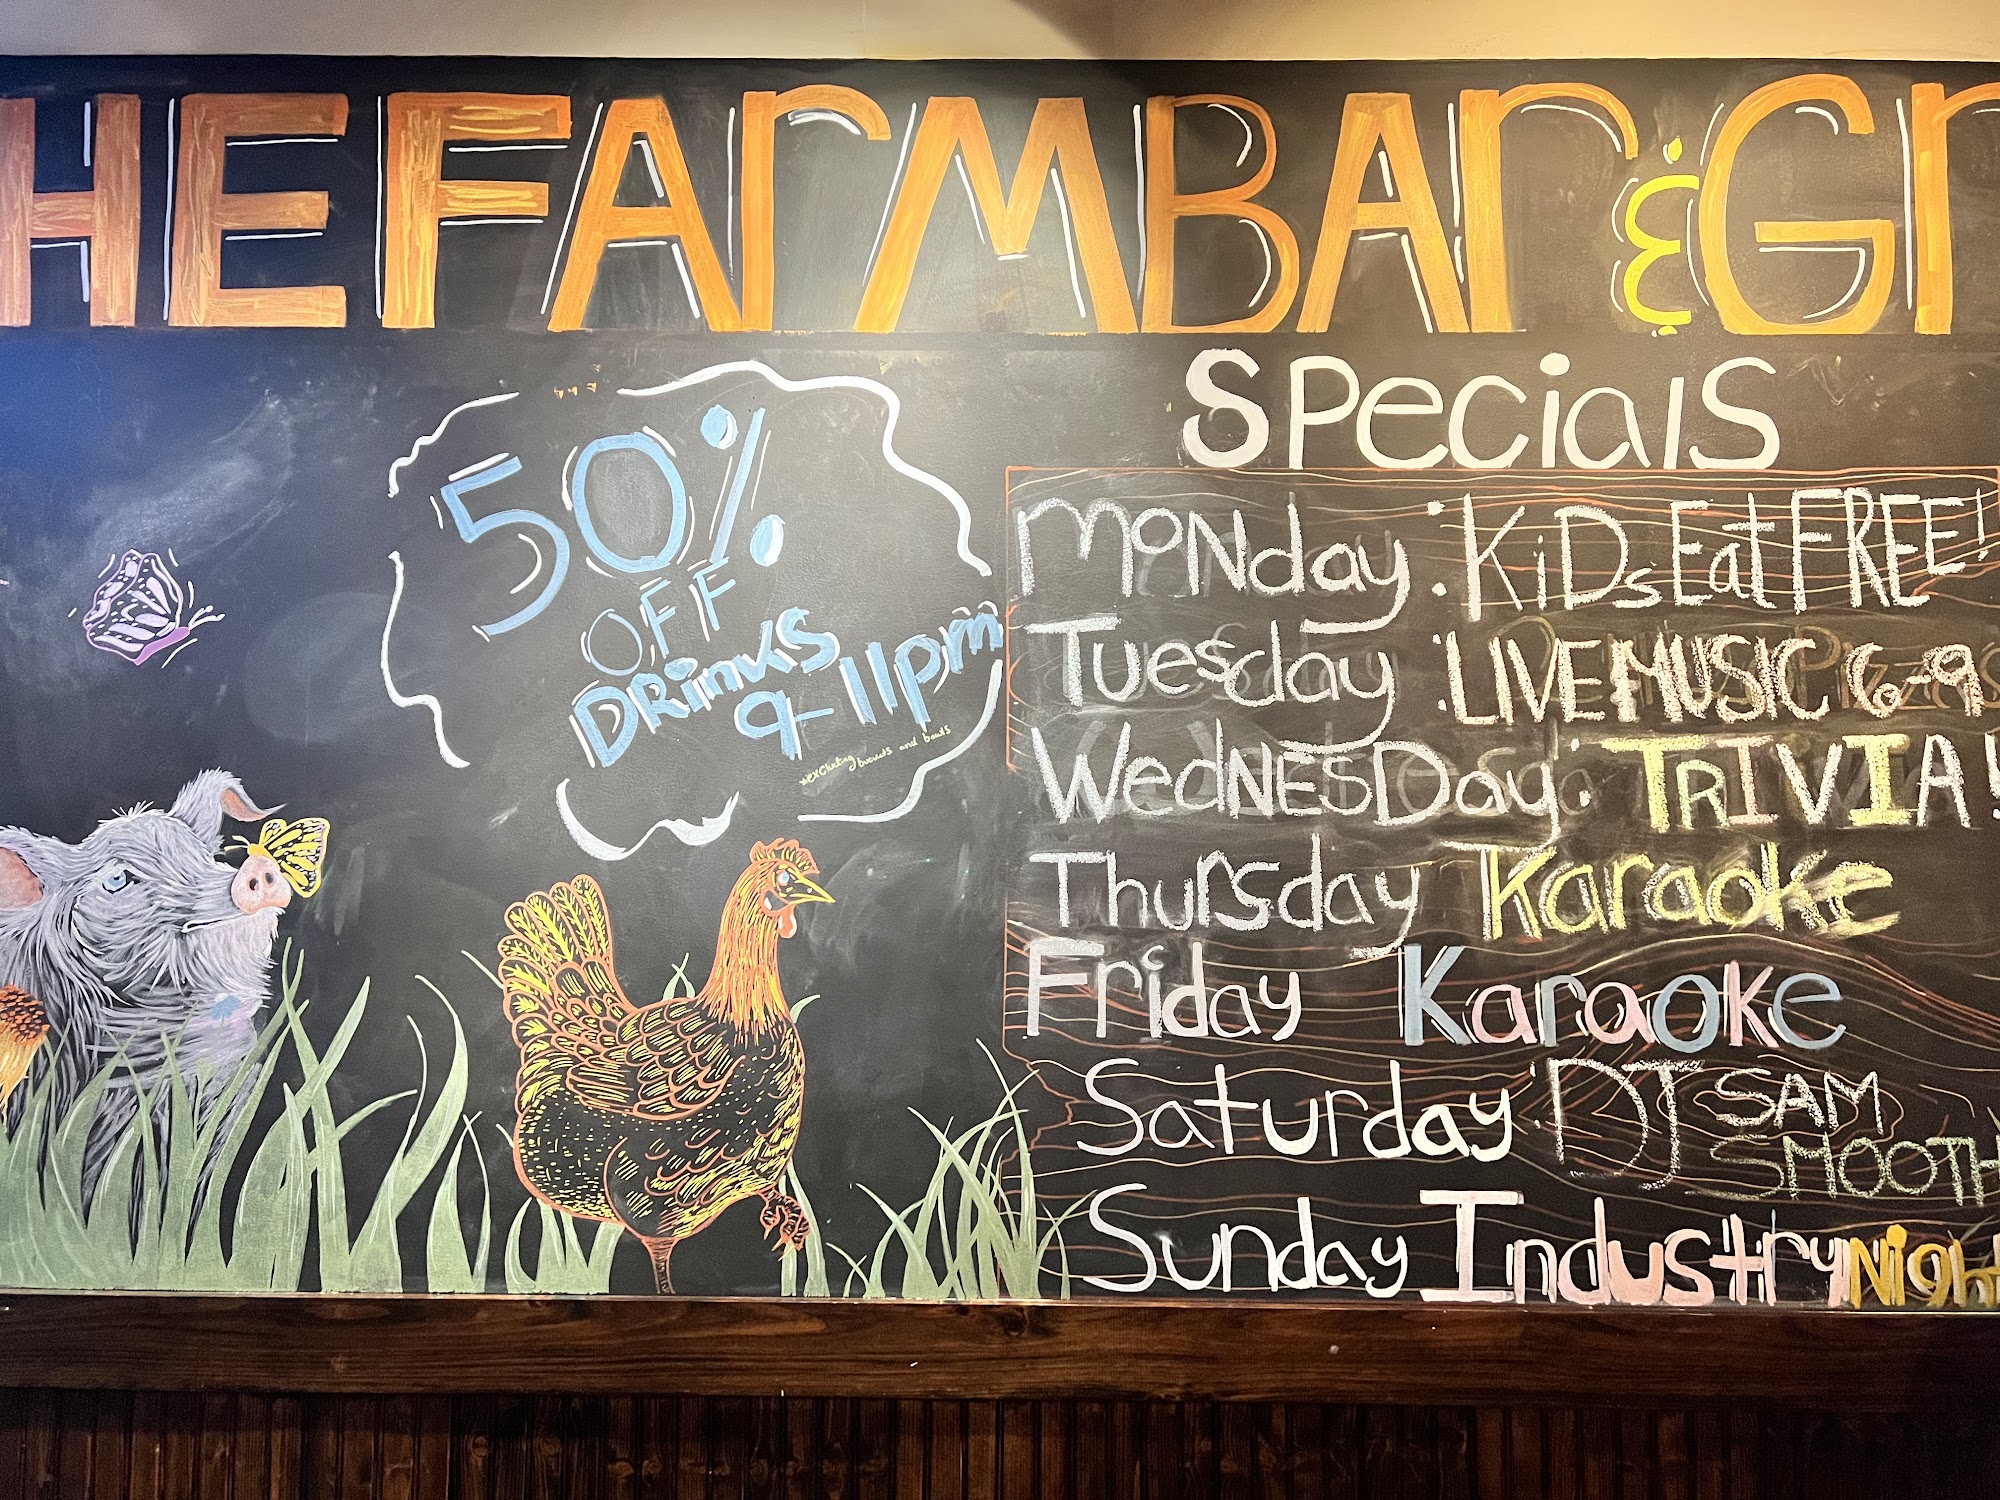 HE FArm BAr & Gr
50%
OFF
DRinks
9-11pm
*excluding buckets and bowls
Specials
Monday : KiDs Eat FREE!
Tuesday : LIVE MUSIC 6-9
WedNESDay : TRIVIA!
Thursday Karaoke
Friday Karaoke
Saturday : DJ SAM
SMOOTH
Sunday Industry Night